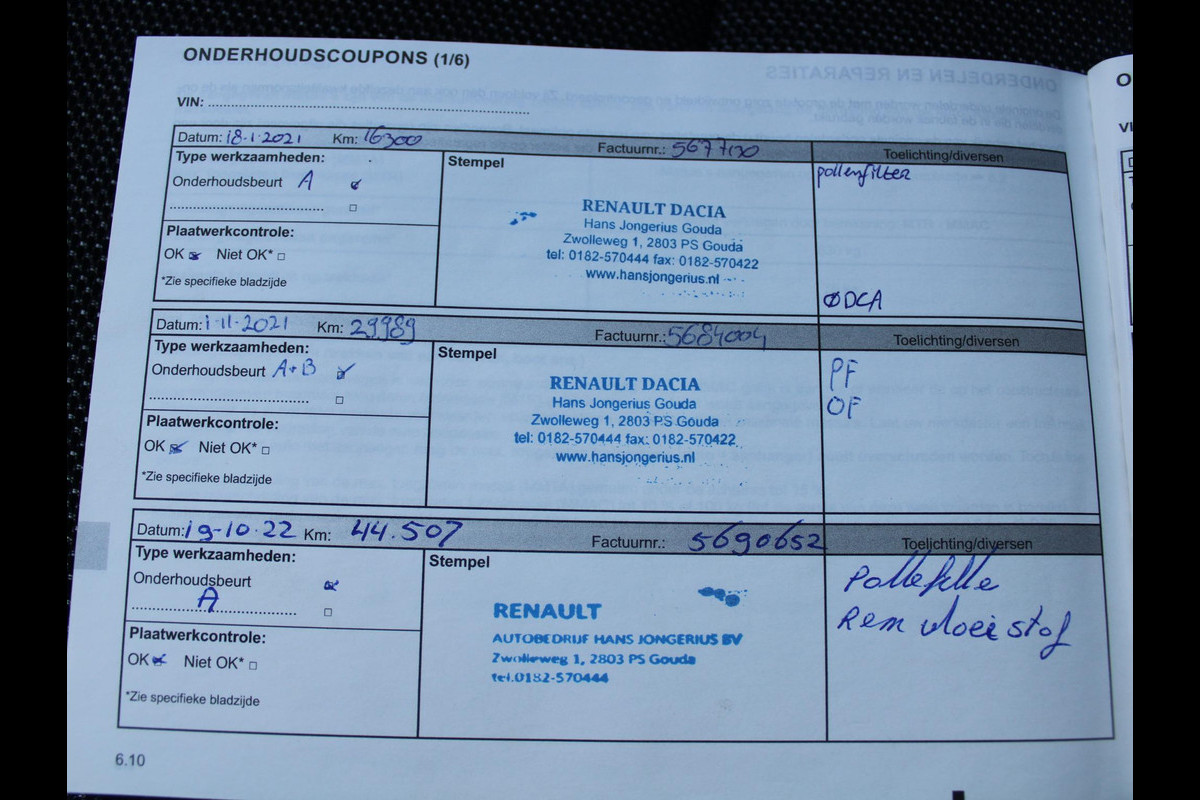 ONDERHOUDSCOUPONS (1/6)
VIN:
Datum: 18·1·2021 Km: 16300 Factuurnr.: Toelichting/diversen
Type werkzaamheden: Stempel pollenfilter
Onderhoudsbeurt A
RENAULT DACIA
Hans Jongerius Gouda
Plaatwerkcontrole: Zwolleweg 1, 2803 PS Gouda
OK Niet OK* tel: 0182-570444 fax: 0182-570422
*Zie specifieke bladzijde www.hansjongerius.nl
ØDCA
Datum: 1-11-2021 Km: 29989 Factuurnr.: 5684004 Toelichting/diversen
Type werkzaamheden: Stempel
Onderhoudsbeurt A+B PF
RENAULT DACIA
Hans Jongerius Gouda OF
Plaatwerkcontrole: Zwolleweg 1, 2803 PS Gouda
OK Niet OK* tel: 0182-570444 fax: 0182-570422
www.hansjongerius.nl
*Zie specifieke bladzijde
Datum: 19-10-22 Km: 44.507 Factuurnr.: 5690652 Toelichting/diversen
Type werkzaamheden: Stempel
Onderhoudsbeurt
A
RENAULT Rem vloeistof
Plaatwerkcontrole: AUTOBEDRIJF HANS JONGERIUS BV
OK Niet OK* Zwolleweg 1, 2803 PS Gouda
tel.0182-570444
*Zie specifieke bladzijde
6.10